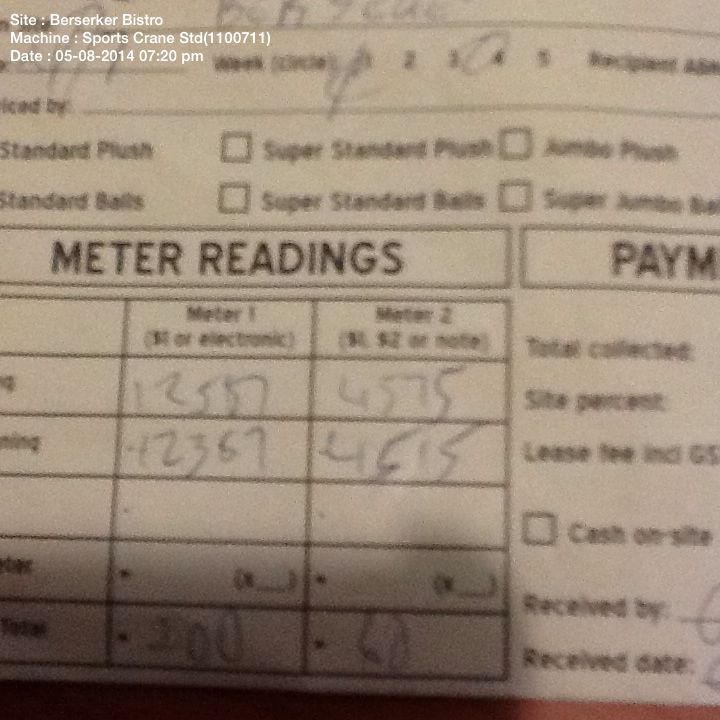 Site : Berserker Bistro
Machine : Sports Crane Std(1100711)
Date : 05-08-2014 07:20 pm
Week (circle) 1 2 3 4 5 Recipient
iced by:
Standard Plush Super Standard Plush Jumbo Plush
Standard Balls Super Standard Balls Super Jumbo
METER READINGS PAYM
Meter 1 Meter 2
($1 or electronic) ($1, $2 or note) Total collected:
12557 4575 Site percent:
ning 12357 4515 Lease fee incl GS
Cash on-site
eter (x__) (x__)
Received by:
Total 200 60
Received date: